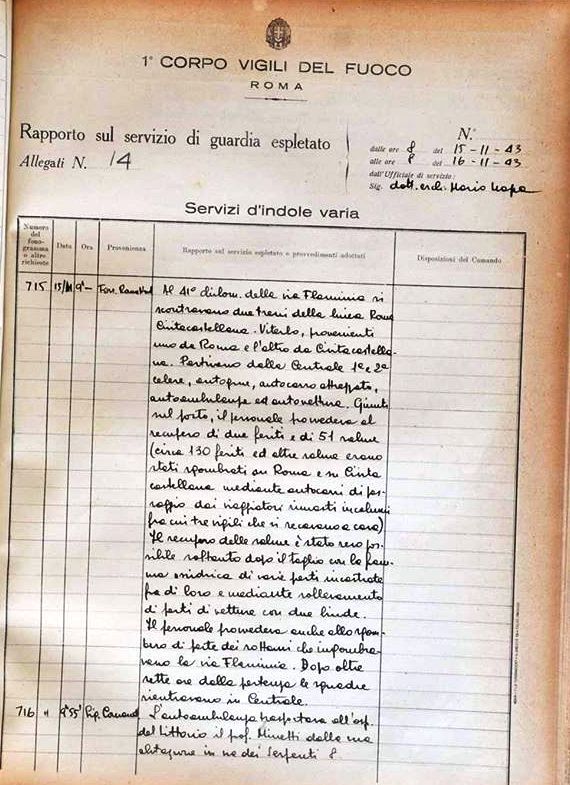 1° CORPO VIGILI DEL FUOCO
ROMA
Rapporto sul servizio di guardia espletato
Allegati N. 14
N.°
dalle ore 8 del 15-11-43
alle ore 8 del 16-11-43
dall'Ufficiale di servizio:
Sig. dott. arch. Mario
Servizi d'indole varia
Numero del fonogramma o altre richieste
Data
Ora
Provenienza
Rapporto sul servizio espletato e provvedimenti adottati
Disposizioni del Comando
715 15/11 9°—
Al 41° chilom. della via Flaminia si
scontravano due treni della linea Roma
Civitacastellana-Viterbo, provenienti
uno da Roma e l'altro da Civitacastella-
na. Partivano dalla Centrale 1a e 2a
celere, autogru, autocarro attrezzato,
autoambulanze ed autovettura. Giunti
sul posto, il personale provvedeva al
recupero di due feriti e di 51 salme
(circa 130 feriti ed altre salme erano
stati sgombrati su Roma e su Civita
castellana mediante autocarri di pas-
saggio dai viaggiatori rimasti incolumi
fra cui tre vigili che si recavano a casa)
Il recupero delle salme è stato reso pos-
sibile soltanto dopo il taglio con la fiam-
ma ossidrica di varie parti incastrate
fra di loro e mediante sollevamento
di parti di vetture con due binde.
Il personale provvedeva anche allo sgom-
bero di parte dei rottami che ingombra-
vano la via Flaminia. Dopo oltre
sette ore dalla partenza le squadre
rientravano in Centrale.
716 " 9°55'
L'autoambulanza trasportava all'osp.
del Littorio il prof. Minetti dalla sua
abitazione in via dei Serpenti 8